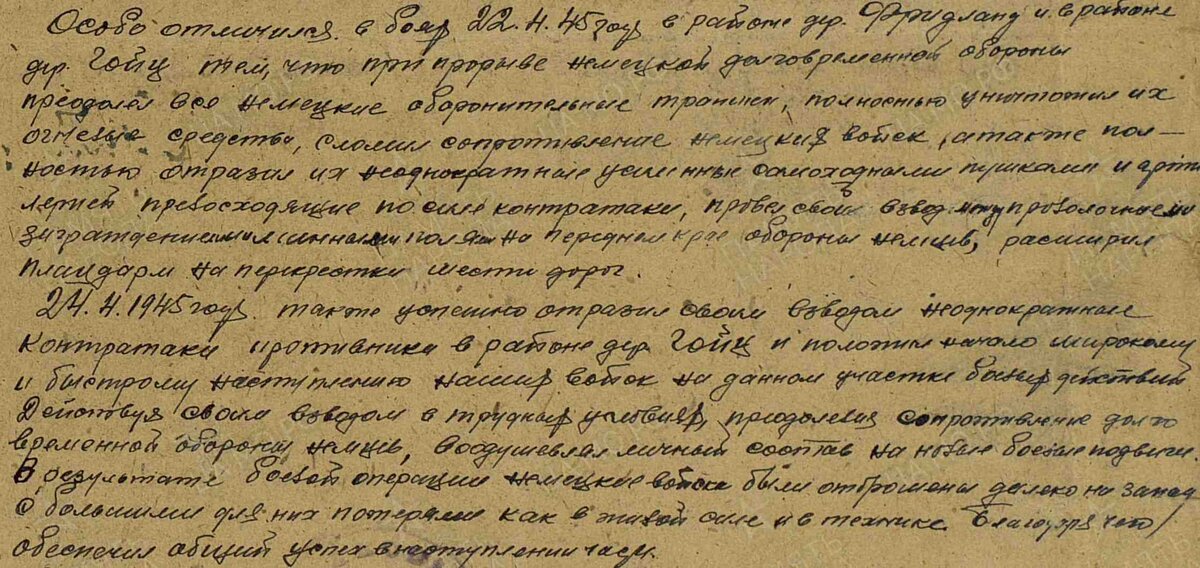 Особо отличился в боях 22.4.45 году в районе дер. Фридланд и в районе
дер. Гойц тем, что при прорыве немецкой долговременной обороны
преодолел все немецкие оборонительные траншеи, полностью уничтожил их
огневые средства, сломил сопротивление немецких войск, а также пол-
ностью отразил их неоднократные усиленные самоходными пушками и арти
лерией превосходящие по силе контратаки, провел свой взвод между проволочными
заграждениями и минными полями на переднем крае обороны немцев, расширил
плацдарм на перекрестки шести дорог.
24.4.1945 году также успешно отразил своим взводом неоднократные
контратаки противника в районе дер. Гойц и положил начало широкому
и быстрому наступлению наших войск на данном участке боевых действий
Действуя своим взводом в трудных условиях, преодолевая сопротивление долго
временной обороны немцев, воодушевлял личный состав на новые боевые подвиги.
В результате боевой операции немецкие войска были отброшены далеко на запад
с большими для них потерями как в живой силе и в технике. Благодаря чего
обеспечил общий успех в наступлении части.